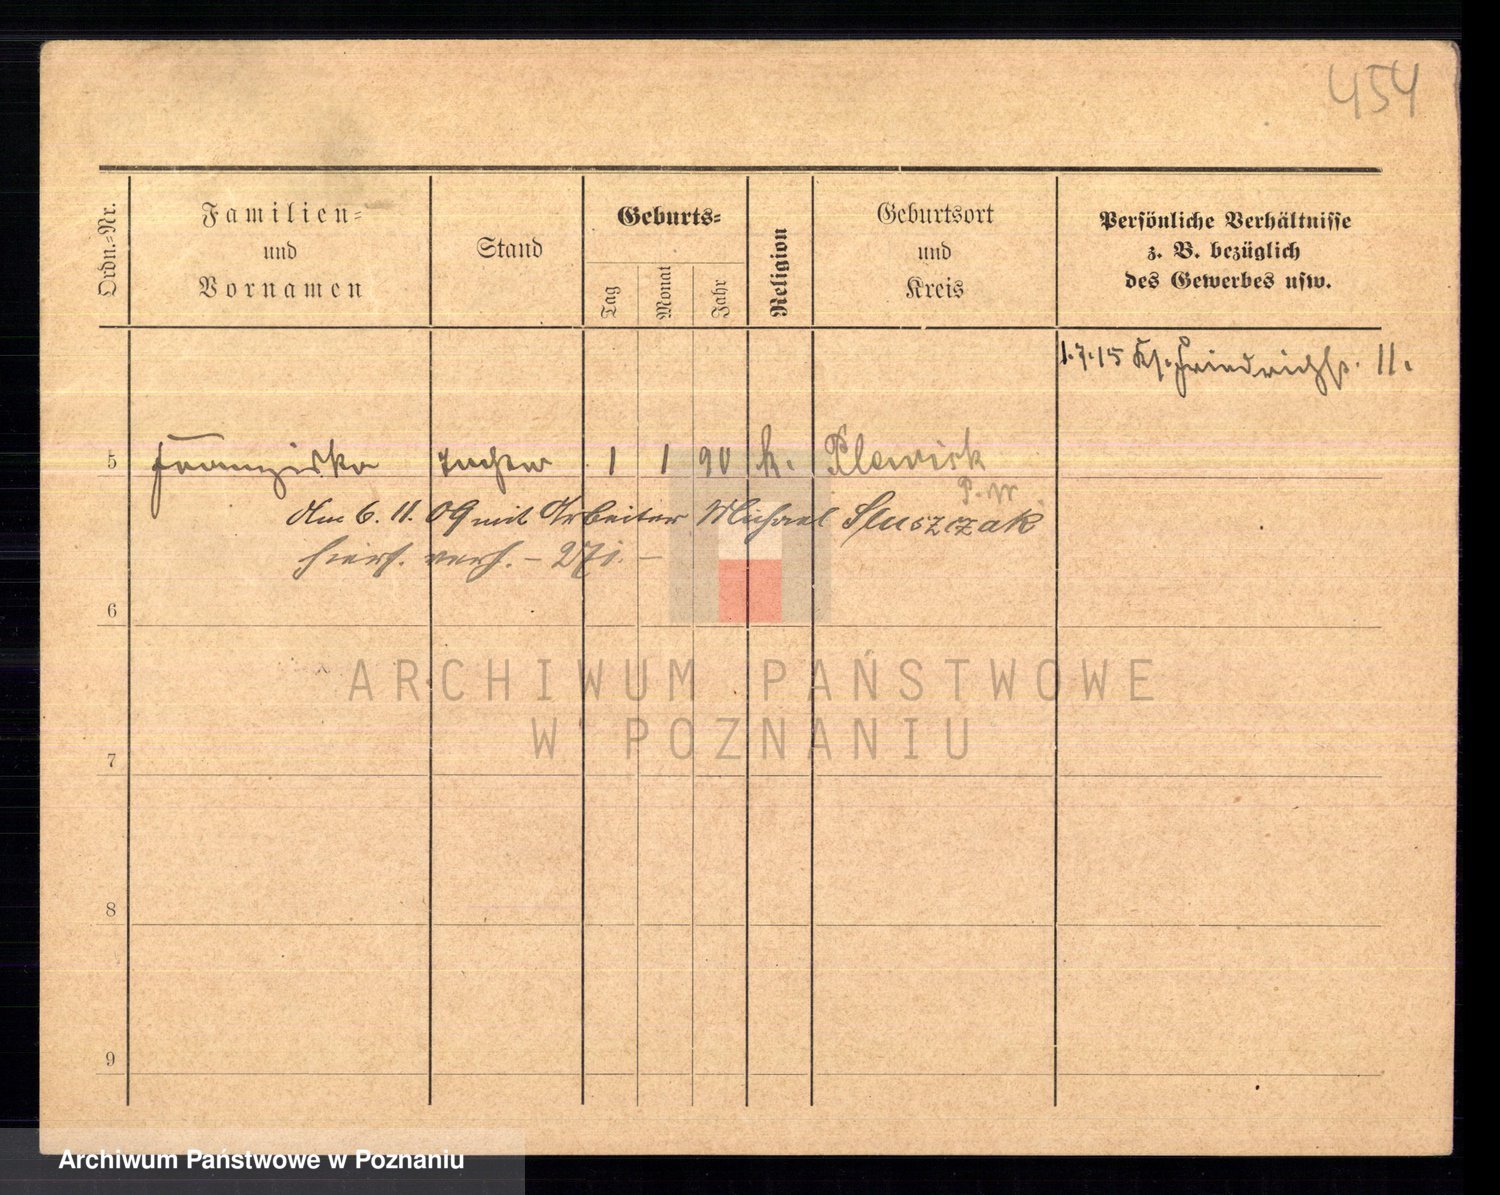 454
Ordn.=Nr.
Familien=
und
Vornamen
Stand
Geburts=
Tag
Monat
Jahr
Religion
Geburtsort
und
Kreis
Persönliche Verhältnisse
z. B. bezüglich
des Gewerbes usw.
1.7.15 Friedrichstr. 11.
5 Franziska Tochter 1 1 90 k. Plewisk
P. W.
Am 6. 11. 09 mit Arbeiter Michael Sluszczak
hiers. verh. –
6
7
8
9
ARCHIWUM PAŃSTWOWE
W POZNANIU
Archiwum Państwowe w Poznaniu